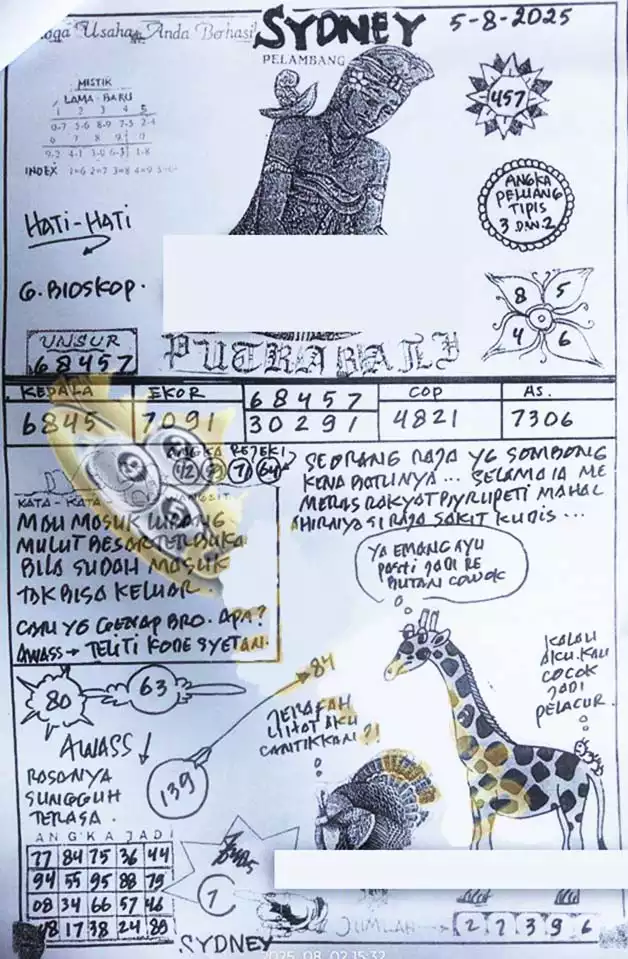 Usaha Anda Berhasil
SYDNEY
5-8-2025
PELAMBANG
MISTIK
LAMA - BARU
1 2 3 4 5
0-7 5-6 8-9 7-3 2-4
6 7 8 9 0
9-2 4-1 3-0 6-5 1-8
INDEX 1=6 2=7 3=8 4=9 5=0
457
ANGKA
PELUANG
TIPIS
3 DAN 2
HATI-HATI
G. BIOSKOP.
8 5
4 6
UNSUR
68457
PUTRA BALI
KEPALA EKOR 68457 COP AS.
6845 7091 30291 4821 7306
ANGKA REJEKI
64
SEORANG RAJA YG SOMBONG
KENA BATUNYA ... SELAMA IA ME
MERAS RAKYAT MAHAL
AHIRNYA SI RAJA SAKIT KUDIS ...
KATA - KATA
MAU MASUK LUBANG
MULUT BESAR TERBUKA
BILA SUDAH MASUK
TAK BISA KELUAR.
CARI YG GENAP BRO. APA?
AWASS → TELITI KODE SYETAN.
YA EMANG AYU
PASTI JADI RE
BUTAN COWOK
KALAU
AKU. KAU
COCOK
JADI
PELACUR.
80
63
84
JERAFAH
LIHAT AKU
CANTIKKAN?!
AWASS
139
RASANYA
SUNGGUH
TERASA.
ANGKA JADI
77 84 75 36 44
94 55 95 88 79
08 34 66 57 46
48 17 38 24 89
7
SYDNEY
JUMLAH → 2 7 3 9 6
2025 08 02 15:32